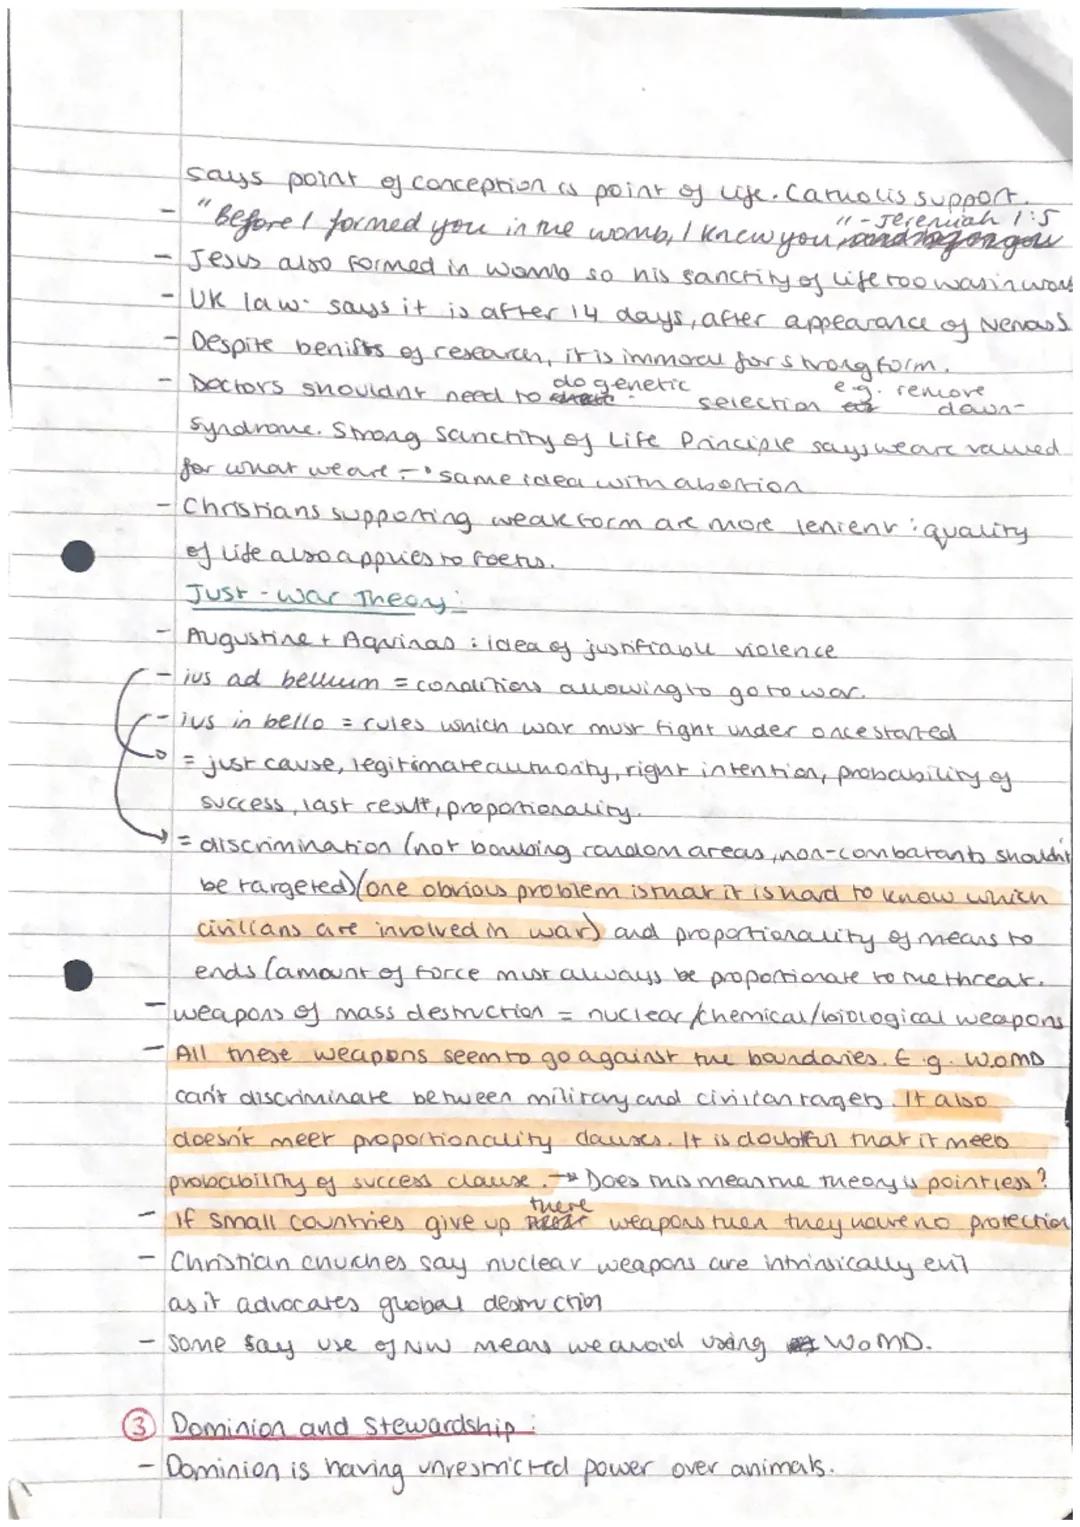 says point of conception is point of life. Catholis support.
- "Before I formed you in the womb, I knew you" - Jeremiah 1:5
- Jesus also formed in womb so his sanctity of life too was in womb
- UK law: says it is after 14 days, after appearance of Nervous S
- Despite benifits of research, it is immoral for strong form.
- Doctors shouldnt need to do genetic selection e.g. remove down-
syndrome. Strong Sanctity of Life Principle says we are valued
for what we are - same idea with abortion
- Christians supporting weak form are more lenient : quality
of life also applies to foetus.
Just-War Theory:
- Augustine + Aquinas : idea of justifiable violence
- ius ad bellum = conditions allowing to go to war.
- ius in bello = rules which war must fight under once started
= just cause, legitimate authority, right intention, probability of
success, last result, proportionality.
= discrimination (not bombing random areas, non-combatants shouldn't
be targeted) (one obvious problem is that it is hard to know which
civilians are involved in war) and proportionality of means to
ends (amount of force must always be proportionate to the threat.
- weapons of mass destruction = nuclear/chemical/biological weapons
- All these weapons seem to go against the boundaries. E.g. W.oMD
can't discriminate between military and civilian targets. It also
doesn't meet proportionality clauses. It is doubtful that it meets
probability of success clause. → Does this mean the theory is pointless?
- If small countries give up there weapons then they have no protection
- Christian chuches say nuclear weapons are intrinsically evil
as it advocates global destruction
- some say use of NW means we avoid using WoMD.
③ Dominion and Stewardship:
- Dominion is having unrestricted power over animals.